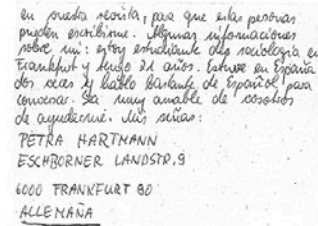 en vuestra revista, para que estas personas
pueden escribirme. Algunas informaciones
sobre mí: estoy estudiante des sociología en
Frankfurt y tengo 21 años. Estuve en España
dos veces y hablo bastante de Español para
conversar. Sea muy amable de vosotros
de ayudarme. Mis señas:
PETRA HARTMANN
ESCHBORNER LANDSTR, 9
6000 FRANKFURT 90
ALLEMAÑA